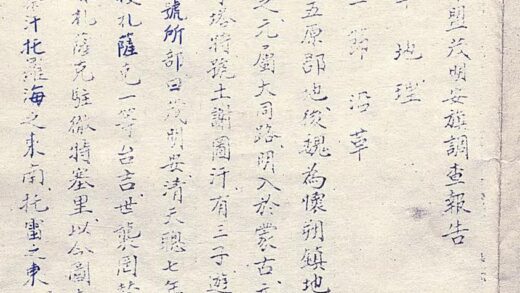 盟茂明安旗調查報告
地理
一節 沿革
五原郡地後魏為懷朔鎮地
之元屬大同路明入於蒙古元
塔特號土謝圖汗有三子遊
號所部曰茂明安清天聰七年
授札薩克一等台吉世襲罔替
札薩克駐徹特塞里以今圖
汗托羅海之東南托雷之東